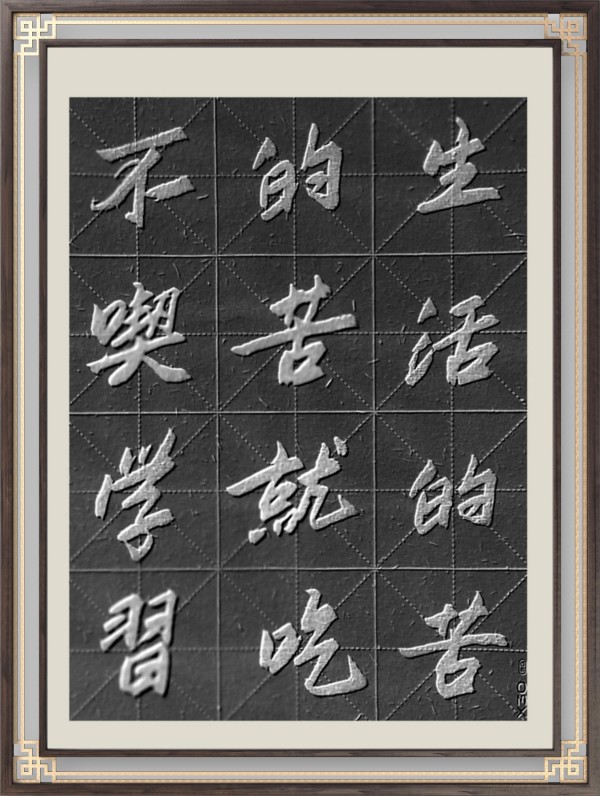 不喫学習
的苦就吃
生活的苦